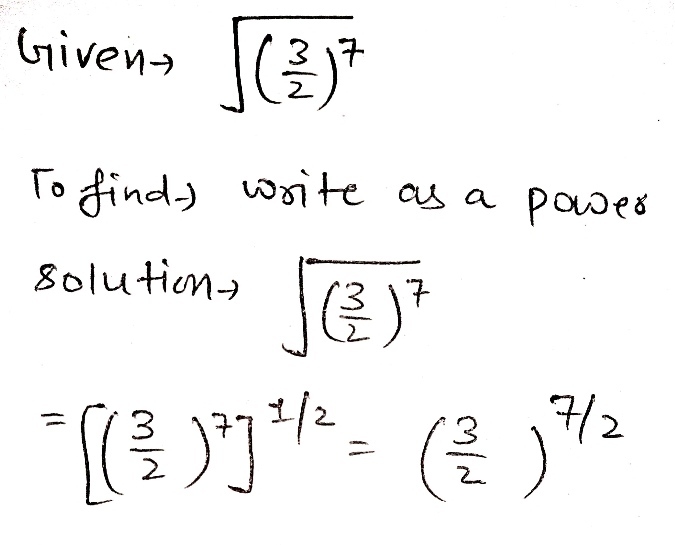 Given→ √(3/2)^7
To find→ write as a power
Solution→ √(3/2)^7
= [(3/2)^7]^1/2 = (3/2)^7/2